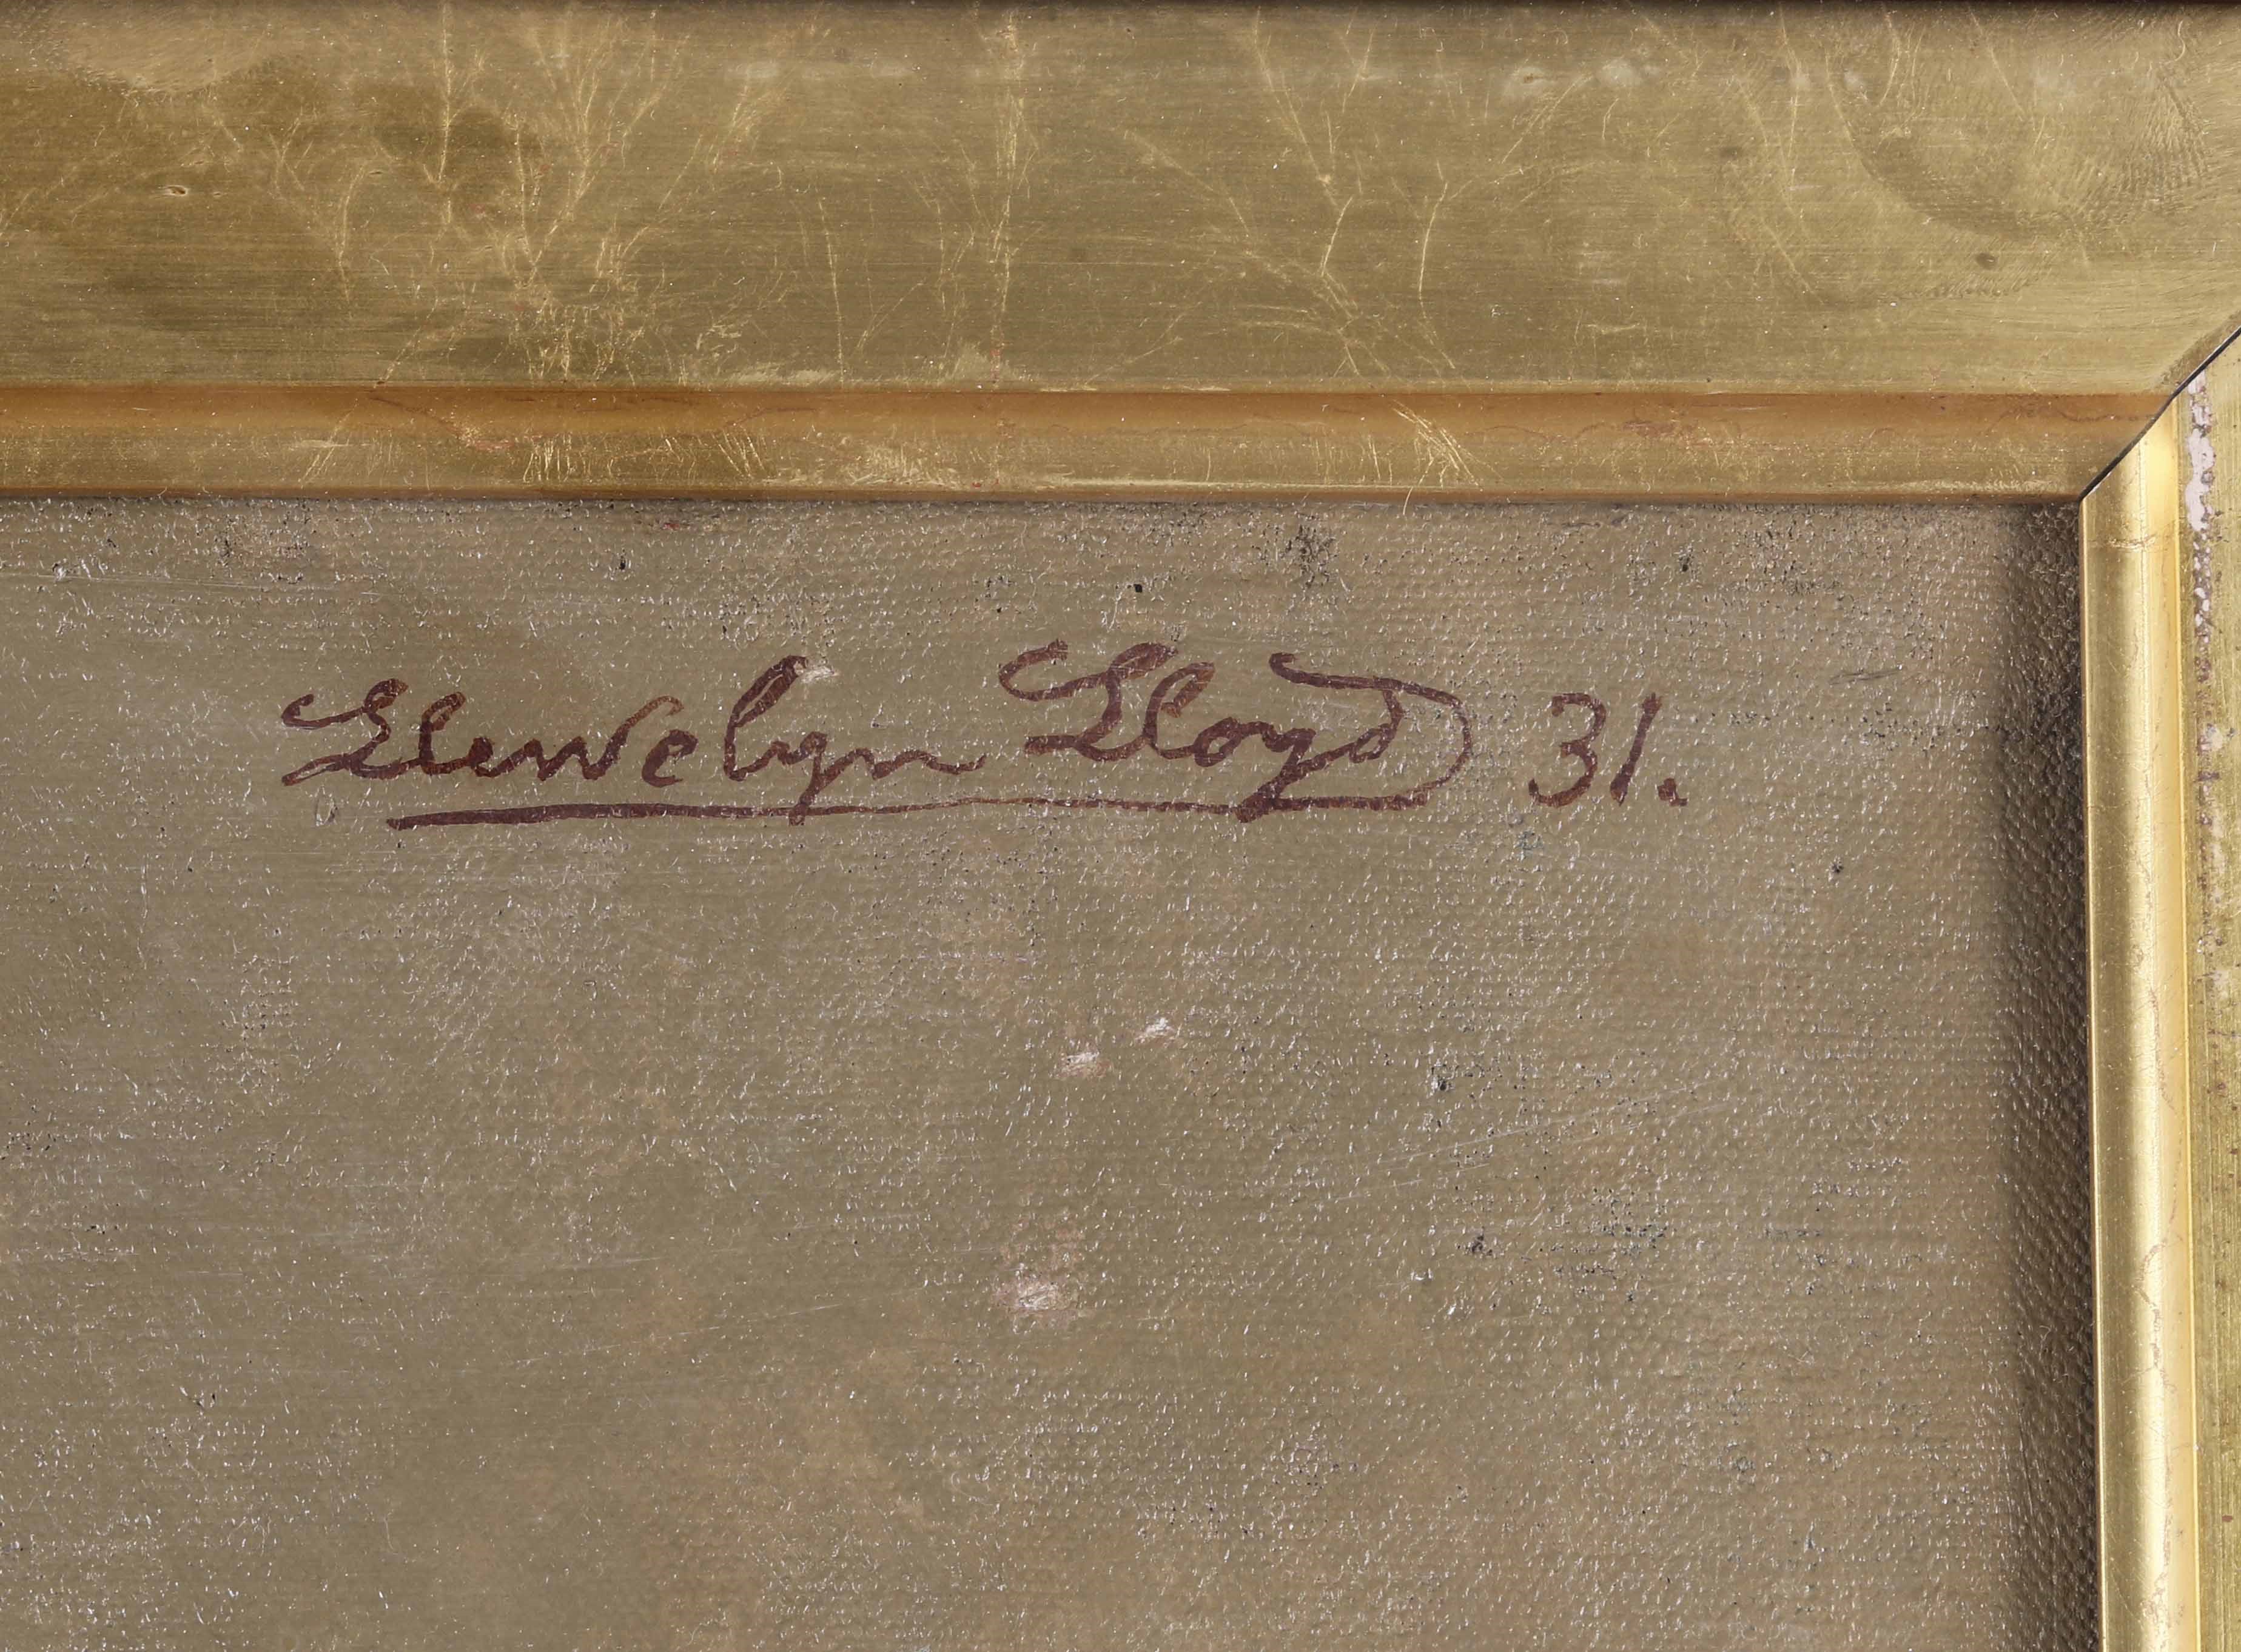 Llewelyn Lloyd 31.